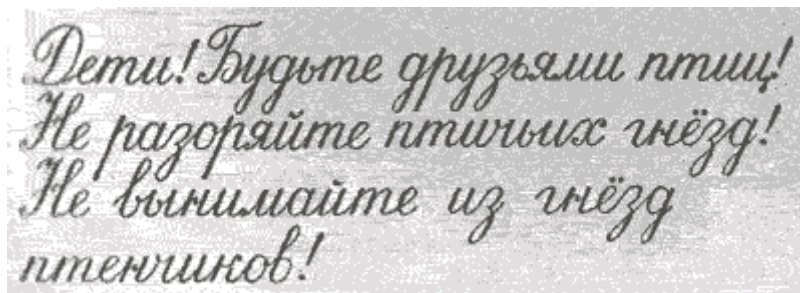 Дети! Будьте друзьями птиц!
Не разоряйте птичьих гнёзд!
Не вынимайте из гнёзд
птенчиков!